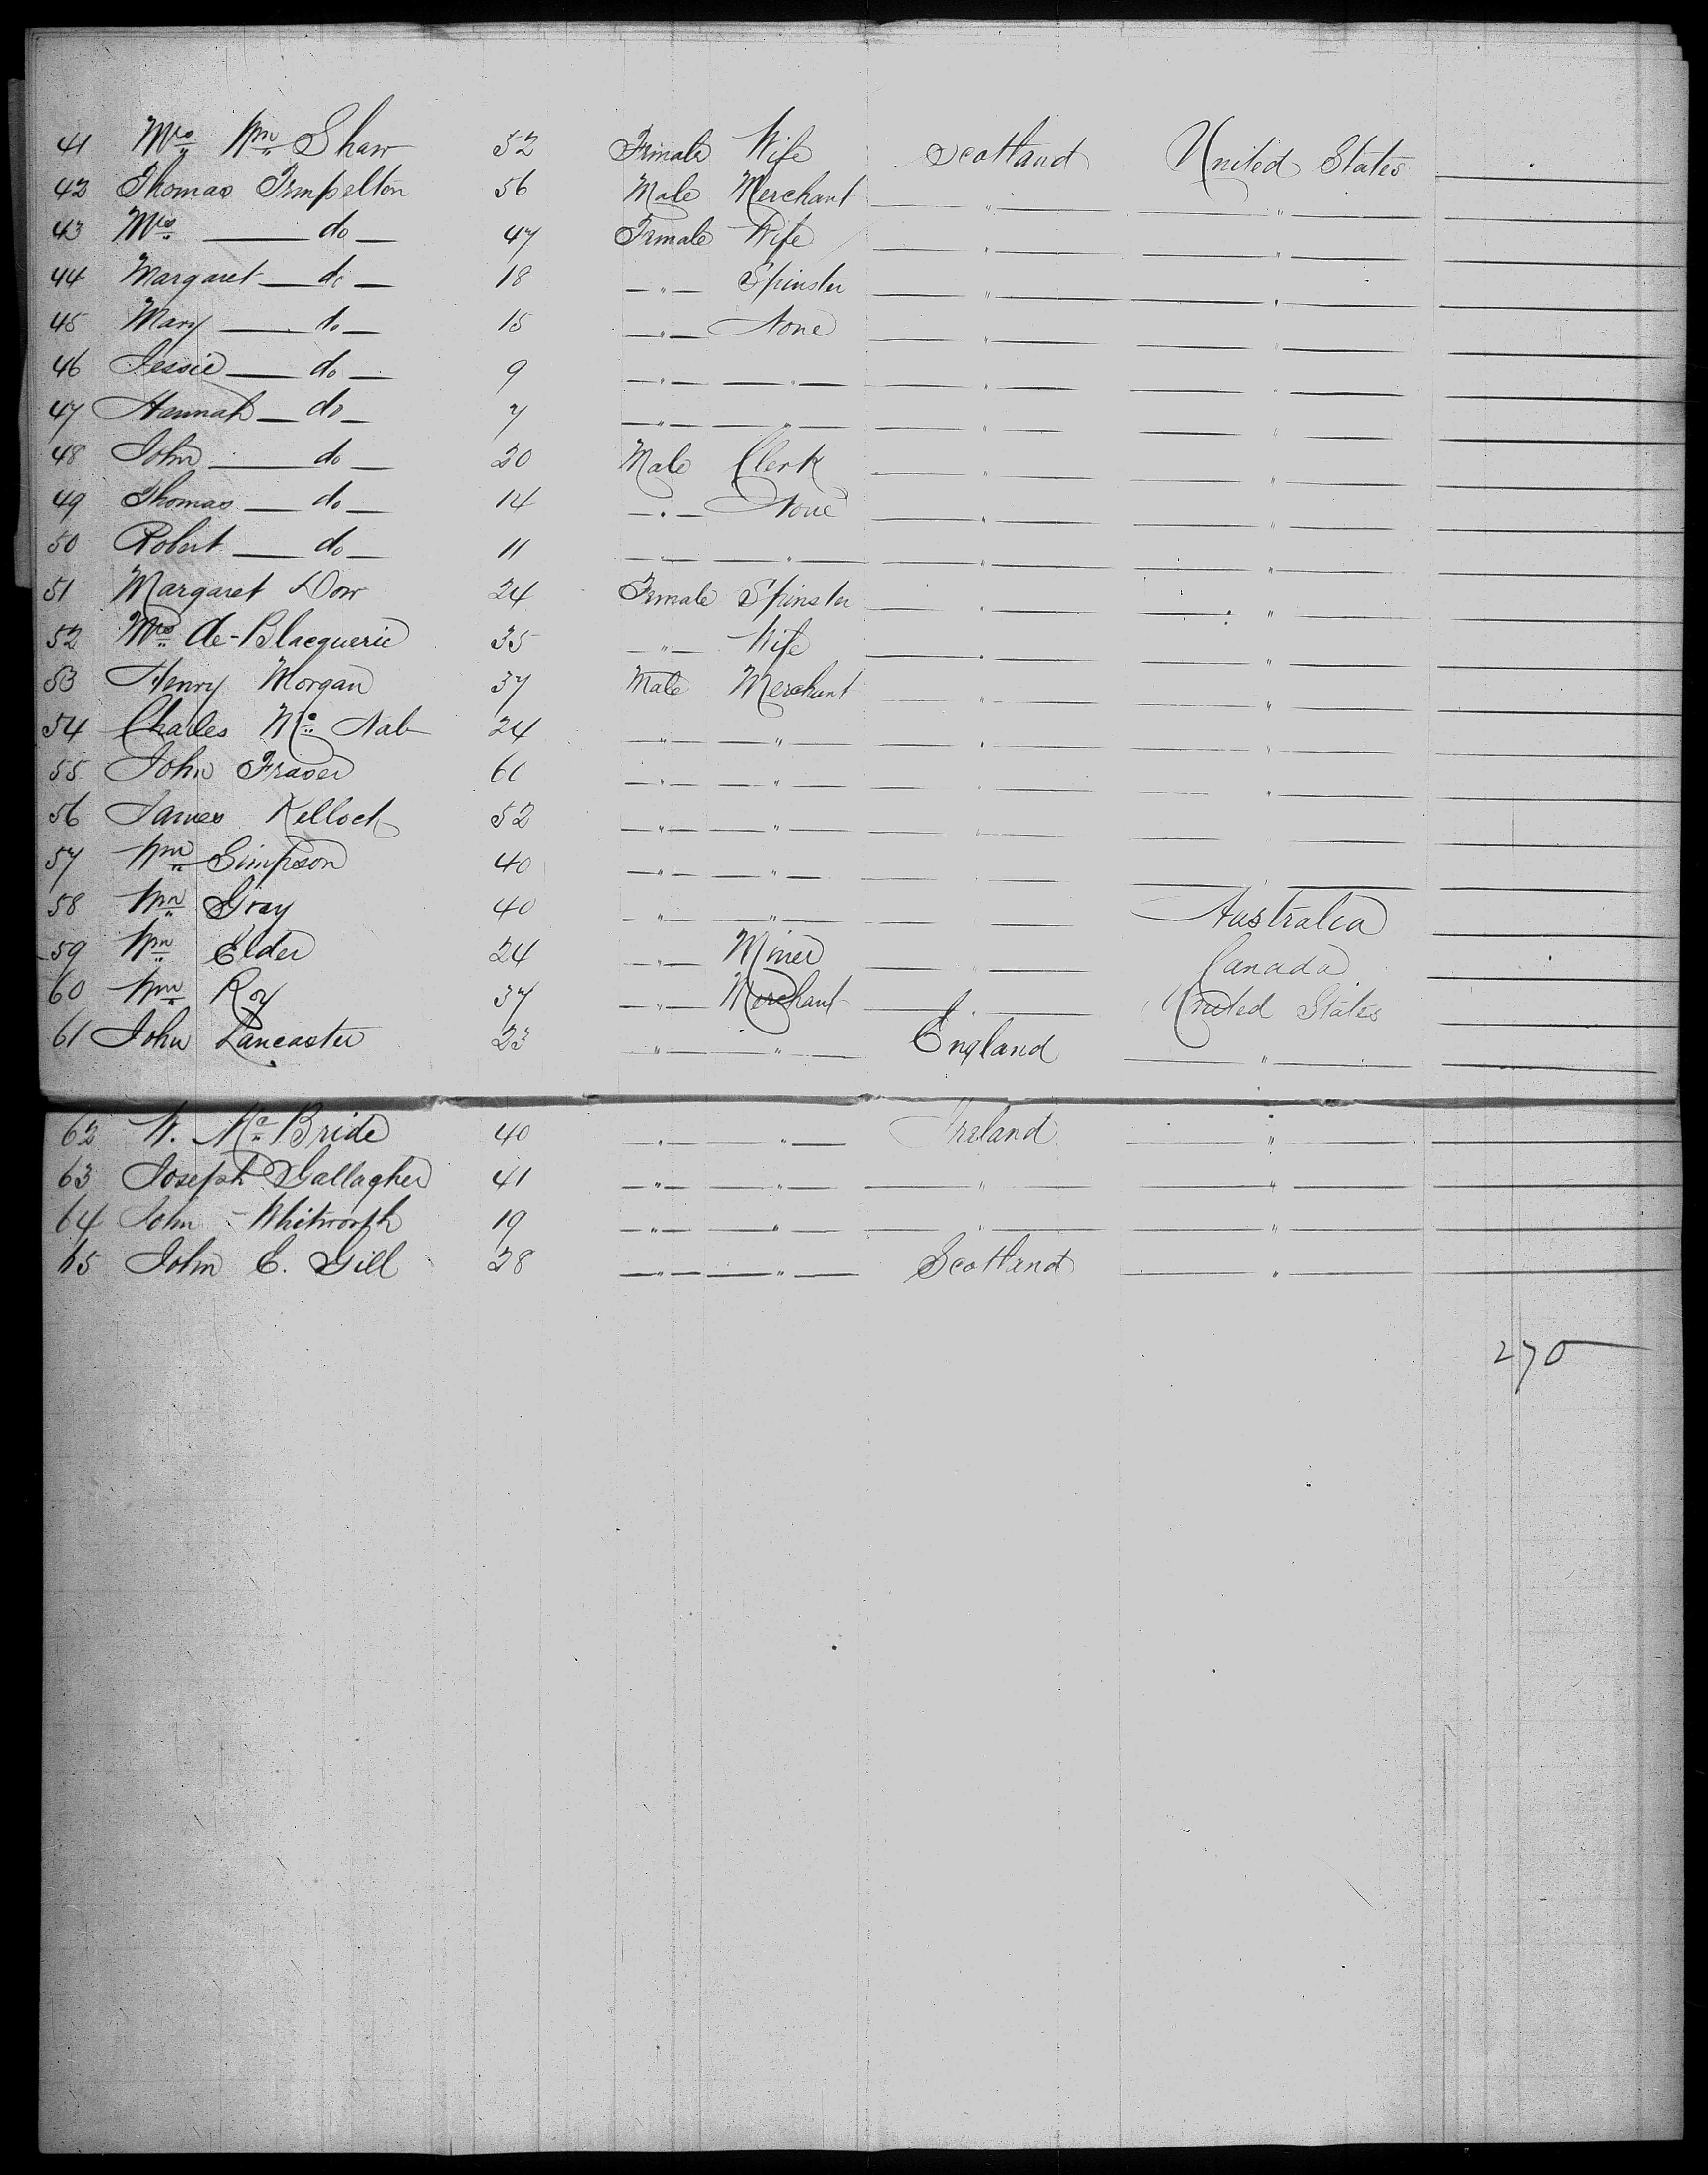 41 Mrs Wm Shaw 52 Female Wife Scotland United States
42 Thomas Tempelton 56 Male Merchant " "
43 Mrs do 47 Female Wife " "
44 Margaret do 18 " Spinster " "
45 Mary do 15 " None " "
46 Jessie do 9 " " " "
47 Hannah do 7 " " " "
48 John do 20 Male Clerk " "
49 Thomas do 14 " None " "
50 Robert do 11 " " " "
51 Margaret Dow 24 Female Spinster " "
52 Mrs de-Blacquerie 35 " Wife " "
53 Henry Morgan 37 Male Merchant " "
54 Charles Mc Nab 24 " " " "
55 John Fraser 60 " " " "
56 James Kelloch 52 " " "
57 Wm Simpson 40 " "
58 Wm Gray 40 " " Australia
59 Wm Elder 24 " Miner " Canada
60 Wm Roy 37 " Merchant " United States
61 John Lancaster 23 " " England "
62 W. Mc Bride 40 " " Ireland "
63 Joseph Gallagher 41 " " " "
64 John Whitworth 19 " " " "
65 John E. Gill 28 " " Scotland "
270